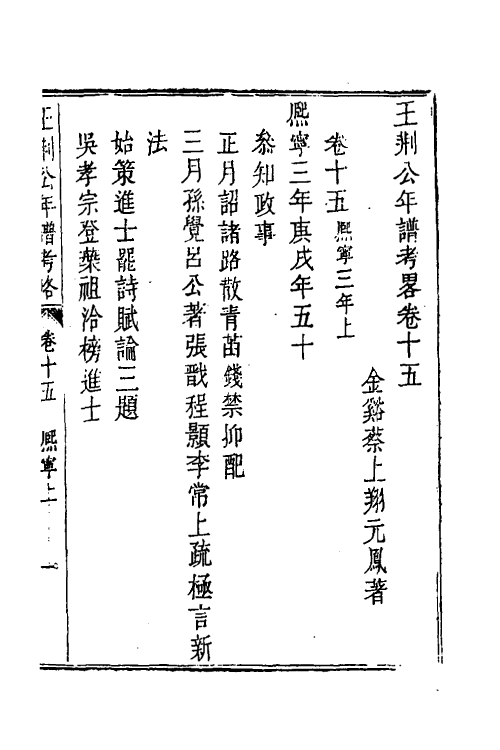 王荆公年譜考畧卷十五
金谿蔡上翔元鳳著
卷十五熙寧三年上
熙寧三年庚戌年五十
叅知政事
正月詔諸路散青苖錢禁抑配
三月孫覺呂公著張戩程顥李常上疏極言新
法
始策進士罷詩賦論三題
吳孝宗登葉祖洽榜進士
王荆公年譜考略 卷十五 熙寧上 一